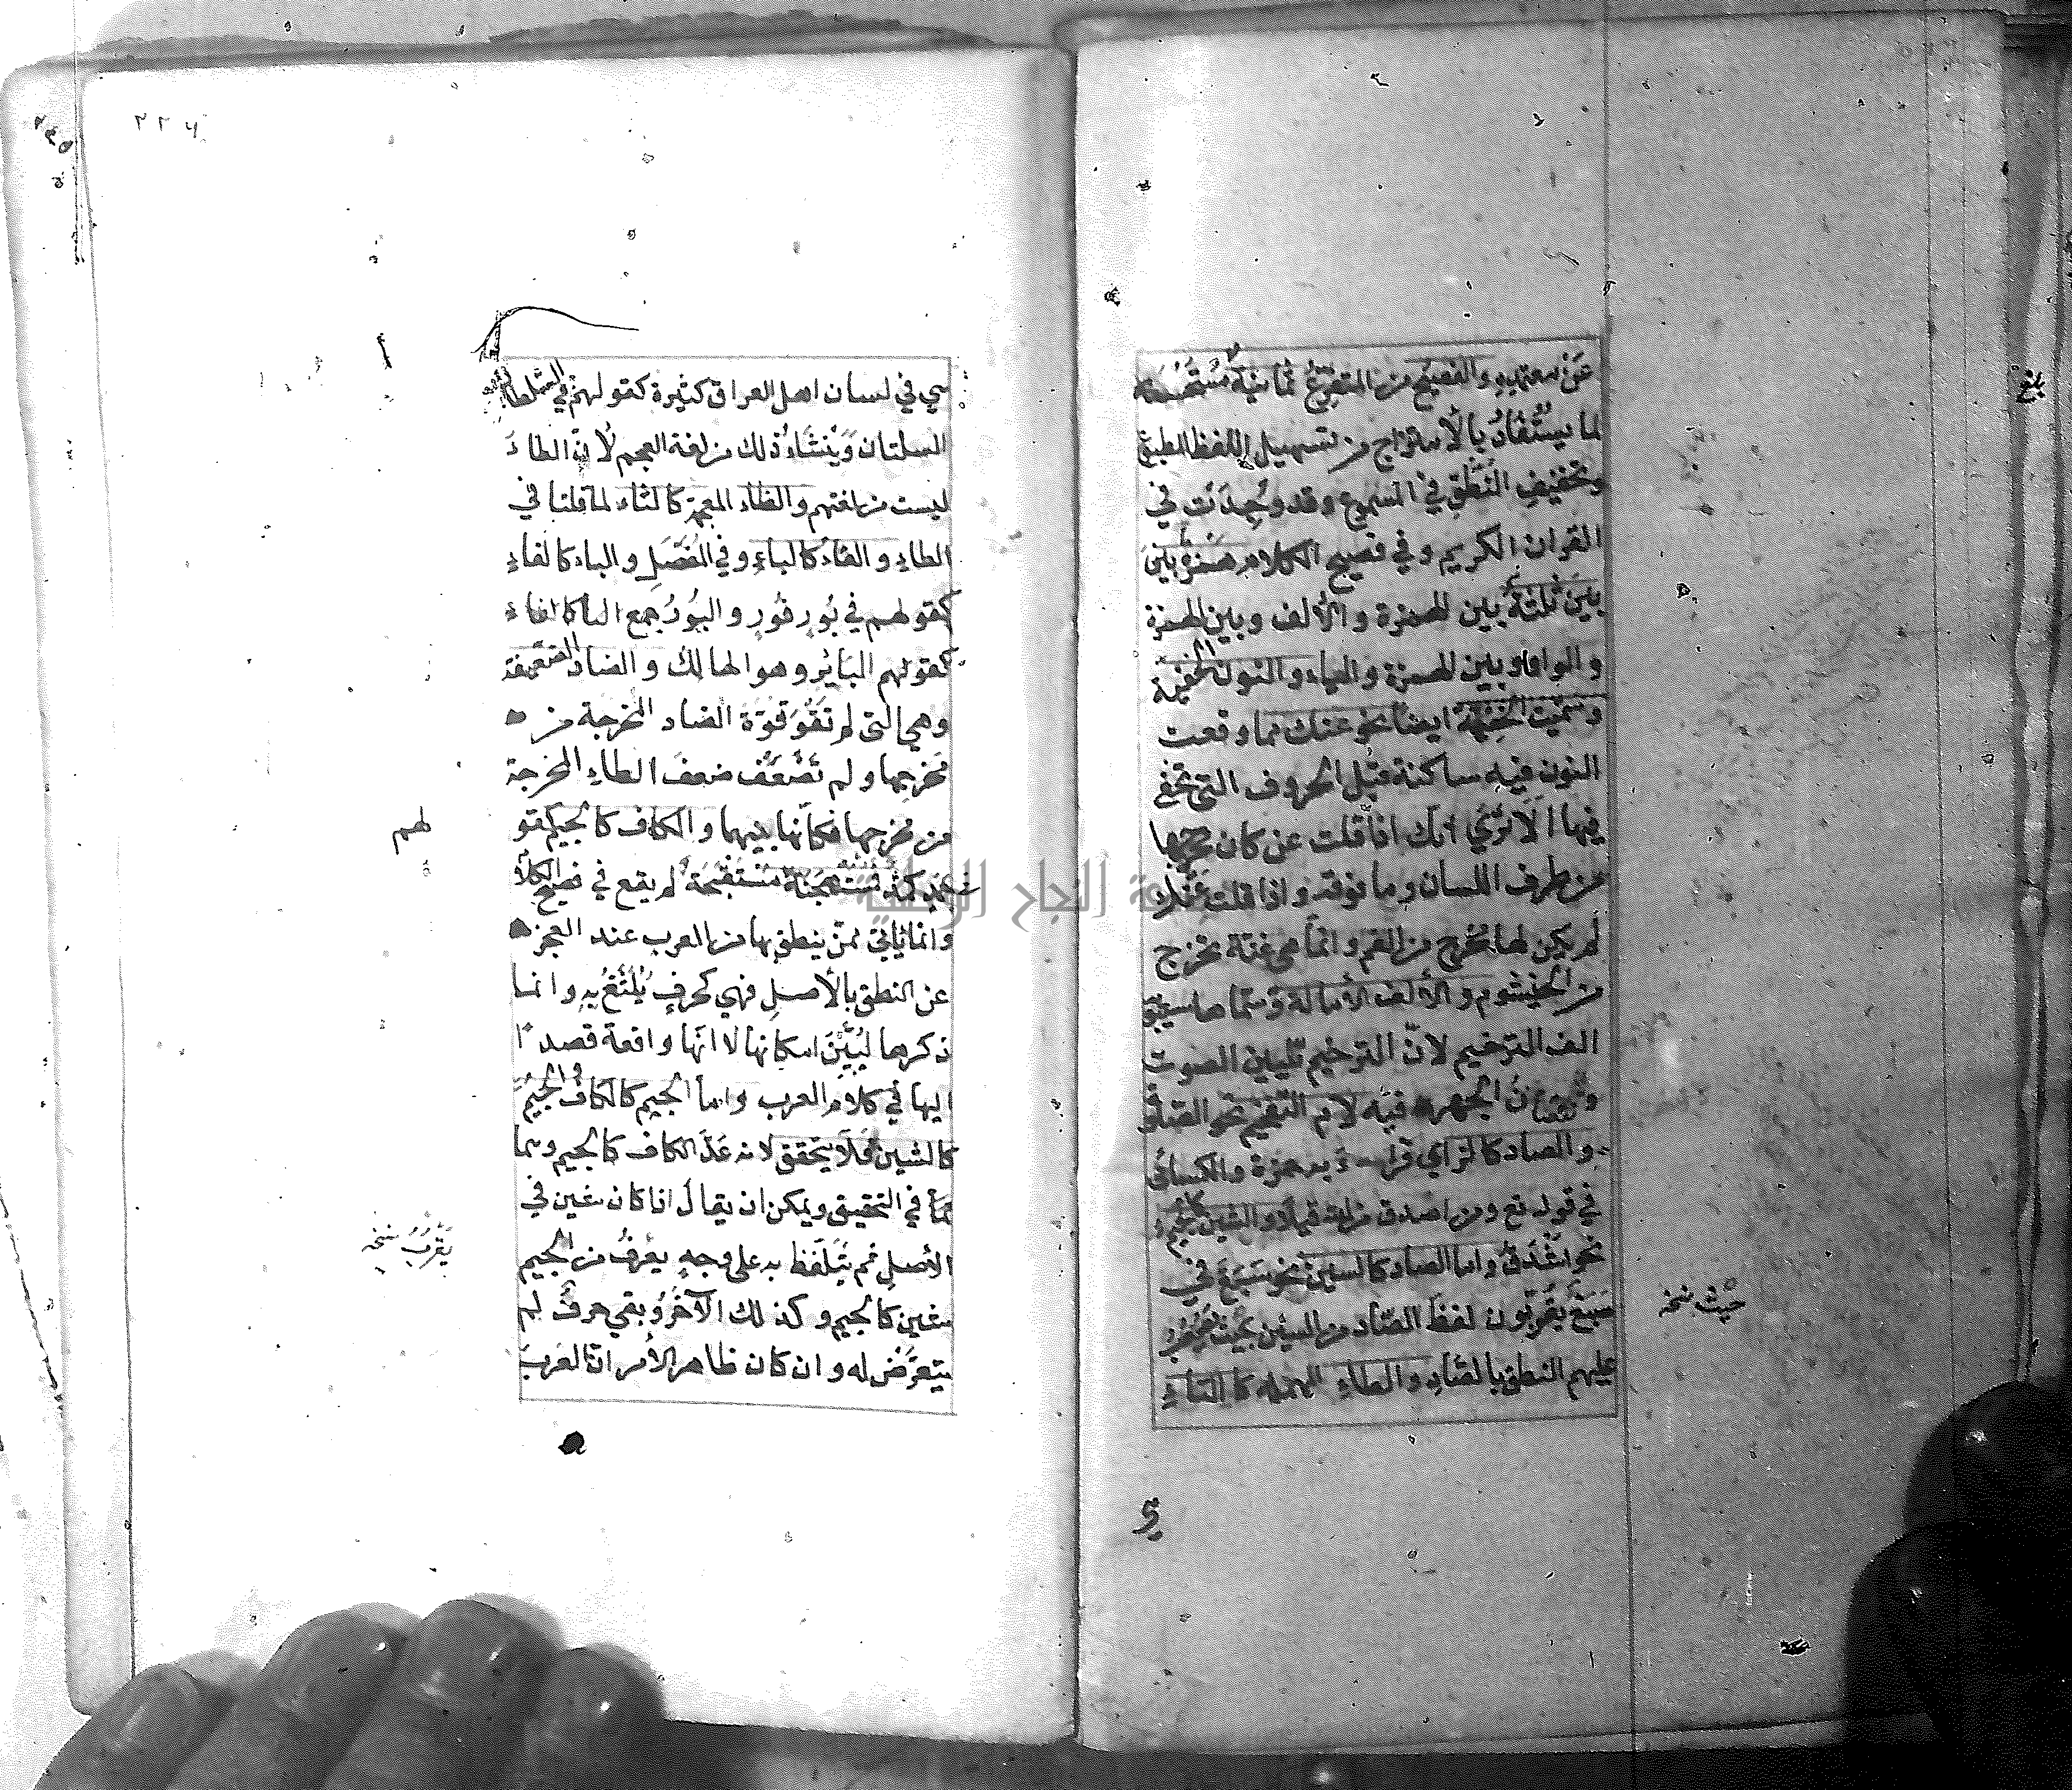 عن معتمده والفصيح من المتفرع ثمانية مستحسنة
لما يستفاد بالامتزاج من تسهيل اللفظ المطبق
وتخفيف النطق في المسموع وقد وجدت في
القران الكريم وفي فصيح الكلام همزة بين
بين ثلثة بين الهمزة والألف وبين الهمزة
والواو وبين الهمزة والياء والنون الخفيفة
وسميت الخفية ايضا نحو عنك مما وقعت
النون فيه ساكنة قبل الحروف التي تخفى
فيها الا ترى انك اذا قلت عن كان مخرجها
من طرف اللسان وما فوقه واذا قلت عنك
لم يكن لها مخرج من الفم وانما هي غنة تخرج
من الخيشوم والألف الأمالة وسماها سيبويه
الف الترخيم لانّ الترخيم تليين الصوت
ونقصان الجهر فيه لام التفخيم نحو الصلوة
والصاد كالزاي قراءة به حمزة والكسائي
في قوله تع ومن اصدق من الله قيلا والشين كالجيم
نحو اشدق واما الصاد كالسين نحو سبغ في
صبغ يقربون لفظ الصاد من السين بحيث
حيث نسخه
عليهم النطق بالصاد والطاء المهمله كالتاء
بلغ
٢٢٦
سي في لسان اهل العراق كثيرة كقولهم في السلطان
السلتان وينشاء ذلك من لغة العجم لأن الطاء
ليست من لغتهم والظاء المعجمة كالثاء لما قلنا في
الطاء والفاء كالباء وفي المفصل والباء كالفاء
كقولهم في بور فور والبور جمع البا كالفاء
كقولهم البائر وهو الهالك والضاد الضعيفة
وهي التي لم تقو قوة الضاد المخرجة من
مخرجها ولم تضعف ضعف الطاء المخرجة
من مخرجها فكأنها بينهما والكاف كالجيم كقو
لهم
فمستهجنة مستقبحة لم يقع في فصيح الكلام
وانما ياتي ممن ينطق بها من العرب عند العجز
عن النطق بالأصل فهي كحرف يلثغ به وانما
ذكرها ليبين امكانها لا انها واقعة قصدا
اليها في كلام العرب واما الجيم كالكاف والجيم
كالشين فلا يتحقق لانه عد الكاف كالجيم وهما
في التحقيق ويمكن ان يقال اذا كان شين في
الأصل ثم يتلفظ به على وجه يعرف من الجيم
يقرب نسخه
شين كالجيم وكذلك الآخر وبقي حرف لم
يتعرض له وان كان ظاهر الأمر ان العرب